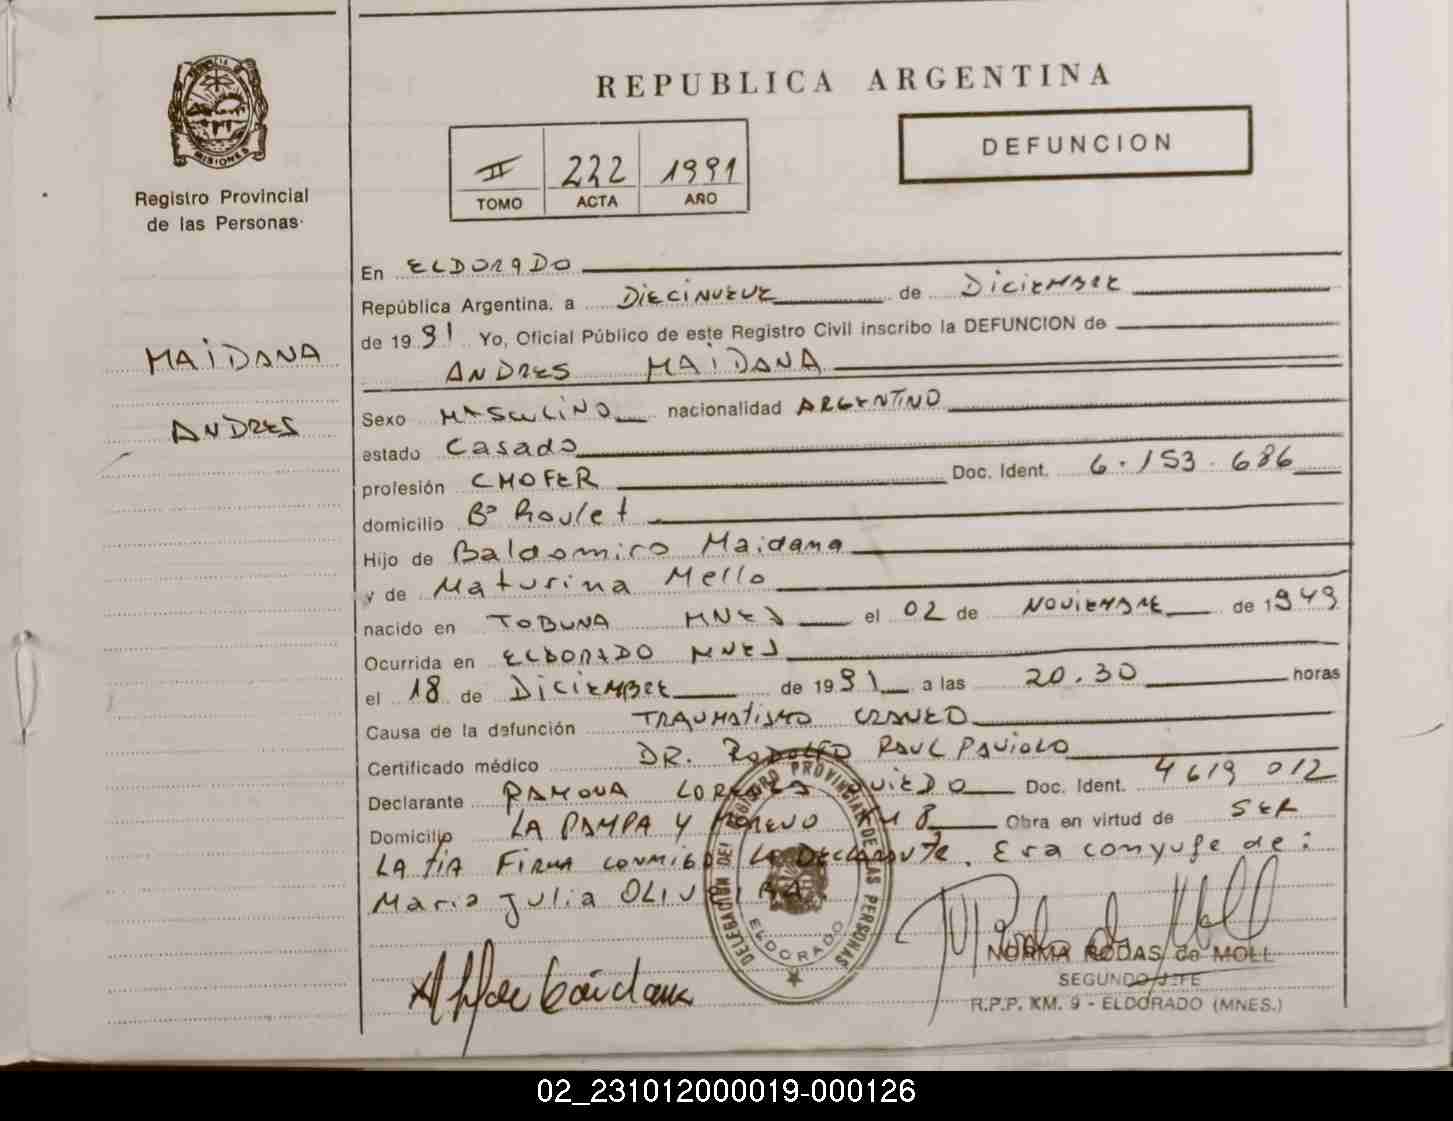 PROVINCIA DE
MISIONES
Registro Provincial
de las Personas
MAIDANA
ANDRES
REPUBLICA ARGENTINA
II 222 1991
TOMO ACTA AÑO
DEFUNCION
En ELDORADO
República Argentina, a DIECINUEVE de DICIEMBRE
de 1991 Yo, Oficial Público de este Registro Civil inscribo la DEFUNCION de
ANDRES MAIDANA
Sexo MASCULINO nacionalidad ARGENTINO
estado Casado
profesión CHOFER Doc. Ident. 6.153.686
domicilio Bº Roulet
Hijo de Baldomiro Maidana
y de Maturina Mello
nacido en TOBUNA MNES el 02 de NOVIEMBRE de 1949
Ocurrida en ELDORADO MNES
el 18 de DICIEMBRE de 1991 a las 20.30 horas
Causa de la defunción TRAUMATISMO CRANEO
Certificado médico DR. RODOLFO RAUL PAVIOLO
Declarante RAMONA OVIEDO Doc. Ident. 4619 012
Domicilio LA PAMPA Y MORENO KM 8 Obra en virtud de SER
LA TIA FIRMA CONMIGO LA DECLARANTE. Era conyuge de:
Maria Julia OLIVEIRA
DELEGACION DEL REGISTRO PROVINCIAL DE LAS PERSONAS
ELDORADO
NORMA RODAS de MOLL
SEGUNDO JEFE
R.P.P. KM. 9 - ELDORADO (MNES.)
02_231012000019-000126